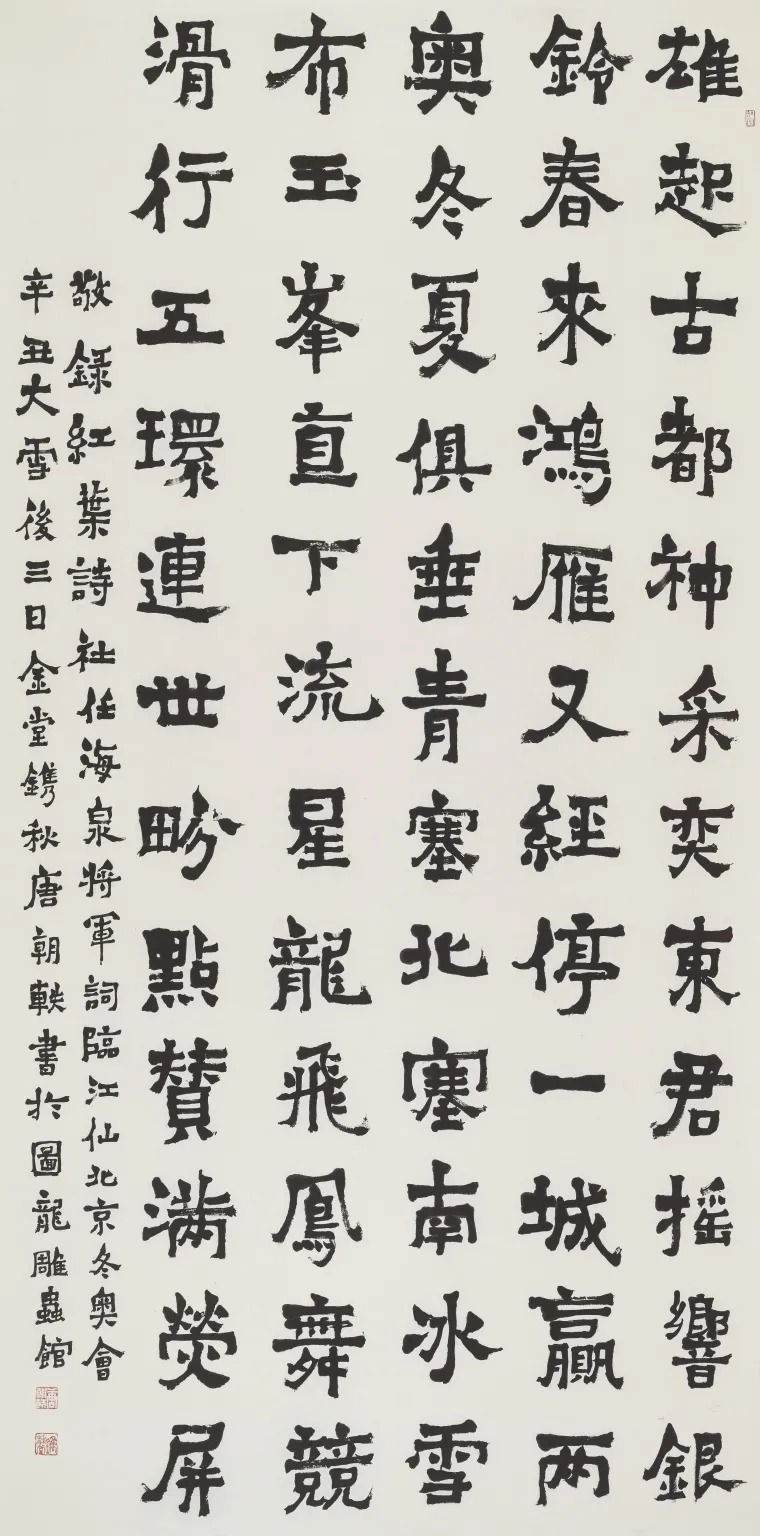 雄起古都神采奕東君摇響銀
鈴春來鴻雁又經停一城贏两
奧冬夏俱垂青塞北塞南冰雪
布玉峯直下流星龍飛鳳舞競
滑行五環連世畛點贊满熒屏
敬録紅葉詩社任海泉将軍詞臨江仙北京冬奧會
辛丑大雪後三日金堂鐫秋唐朝軼書於圖龍雕蟲館